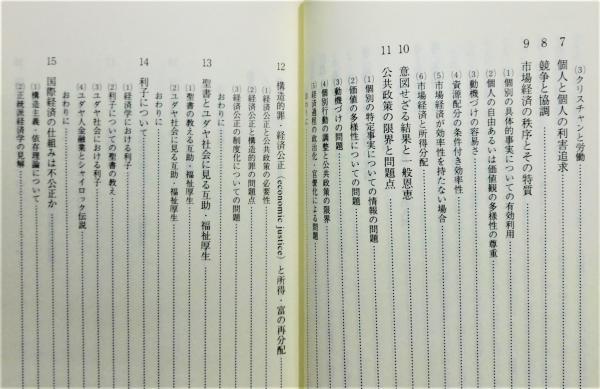 (3)クリスチャンと労働
7 個人と個人の利害追求
8 競争と協調
9 市場経済の秩序とその特質
(1)個別の具体的事実についての有効利用
(2)個人の自由あるいは価値観の多様性の尊重
(3)動機づけの容易さ
(4)資源配分の条件付き効率性
(5)市場経済が効率性を持たない場合
(6)市場経済と所得分配
10 意図せざる結果と一般恩恵
11 公共政策の限界と問題点
(1)個別の特定事実についての情報の問題
(2)価値の多様性についての問題
(3)動機づけの問題
(4)個別行動の調整と公共政策の限界
(5)経済過程の政治化・官僚化による問題
おわりに
12 構造的罪・経済公正(economic justice)と所得・富の再分配
(1)経済公正と公共政策の必要性
(2)経済公正と構造的罪の問題点
(3)経済公正の制度化についての問題
おわりに
13 聖書とユダヤ社会に見る互助・福祉厚生
(1)聖書の教える互助・福祉厚生
(2)ユダヤ社会に見る互助・福祉厚生
おわりに
14 利子について
(1)経済学における利子
(2)利子についての聖書の教え
(3)ユダヤ社会における利子
(4)ユダヤ人金融業とシャイロック伝説
おわりに
15 国際経済の仕組みは不公正か
(1)構造主義・依存理論について
(2)正統派経済学の見解